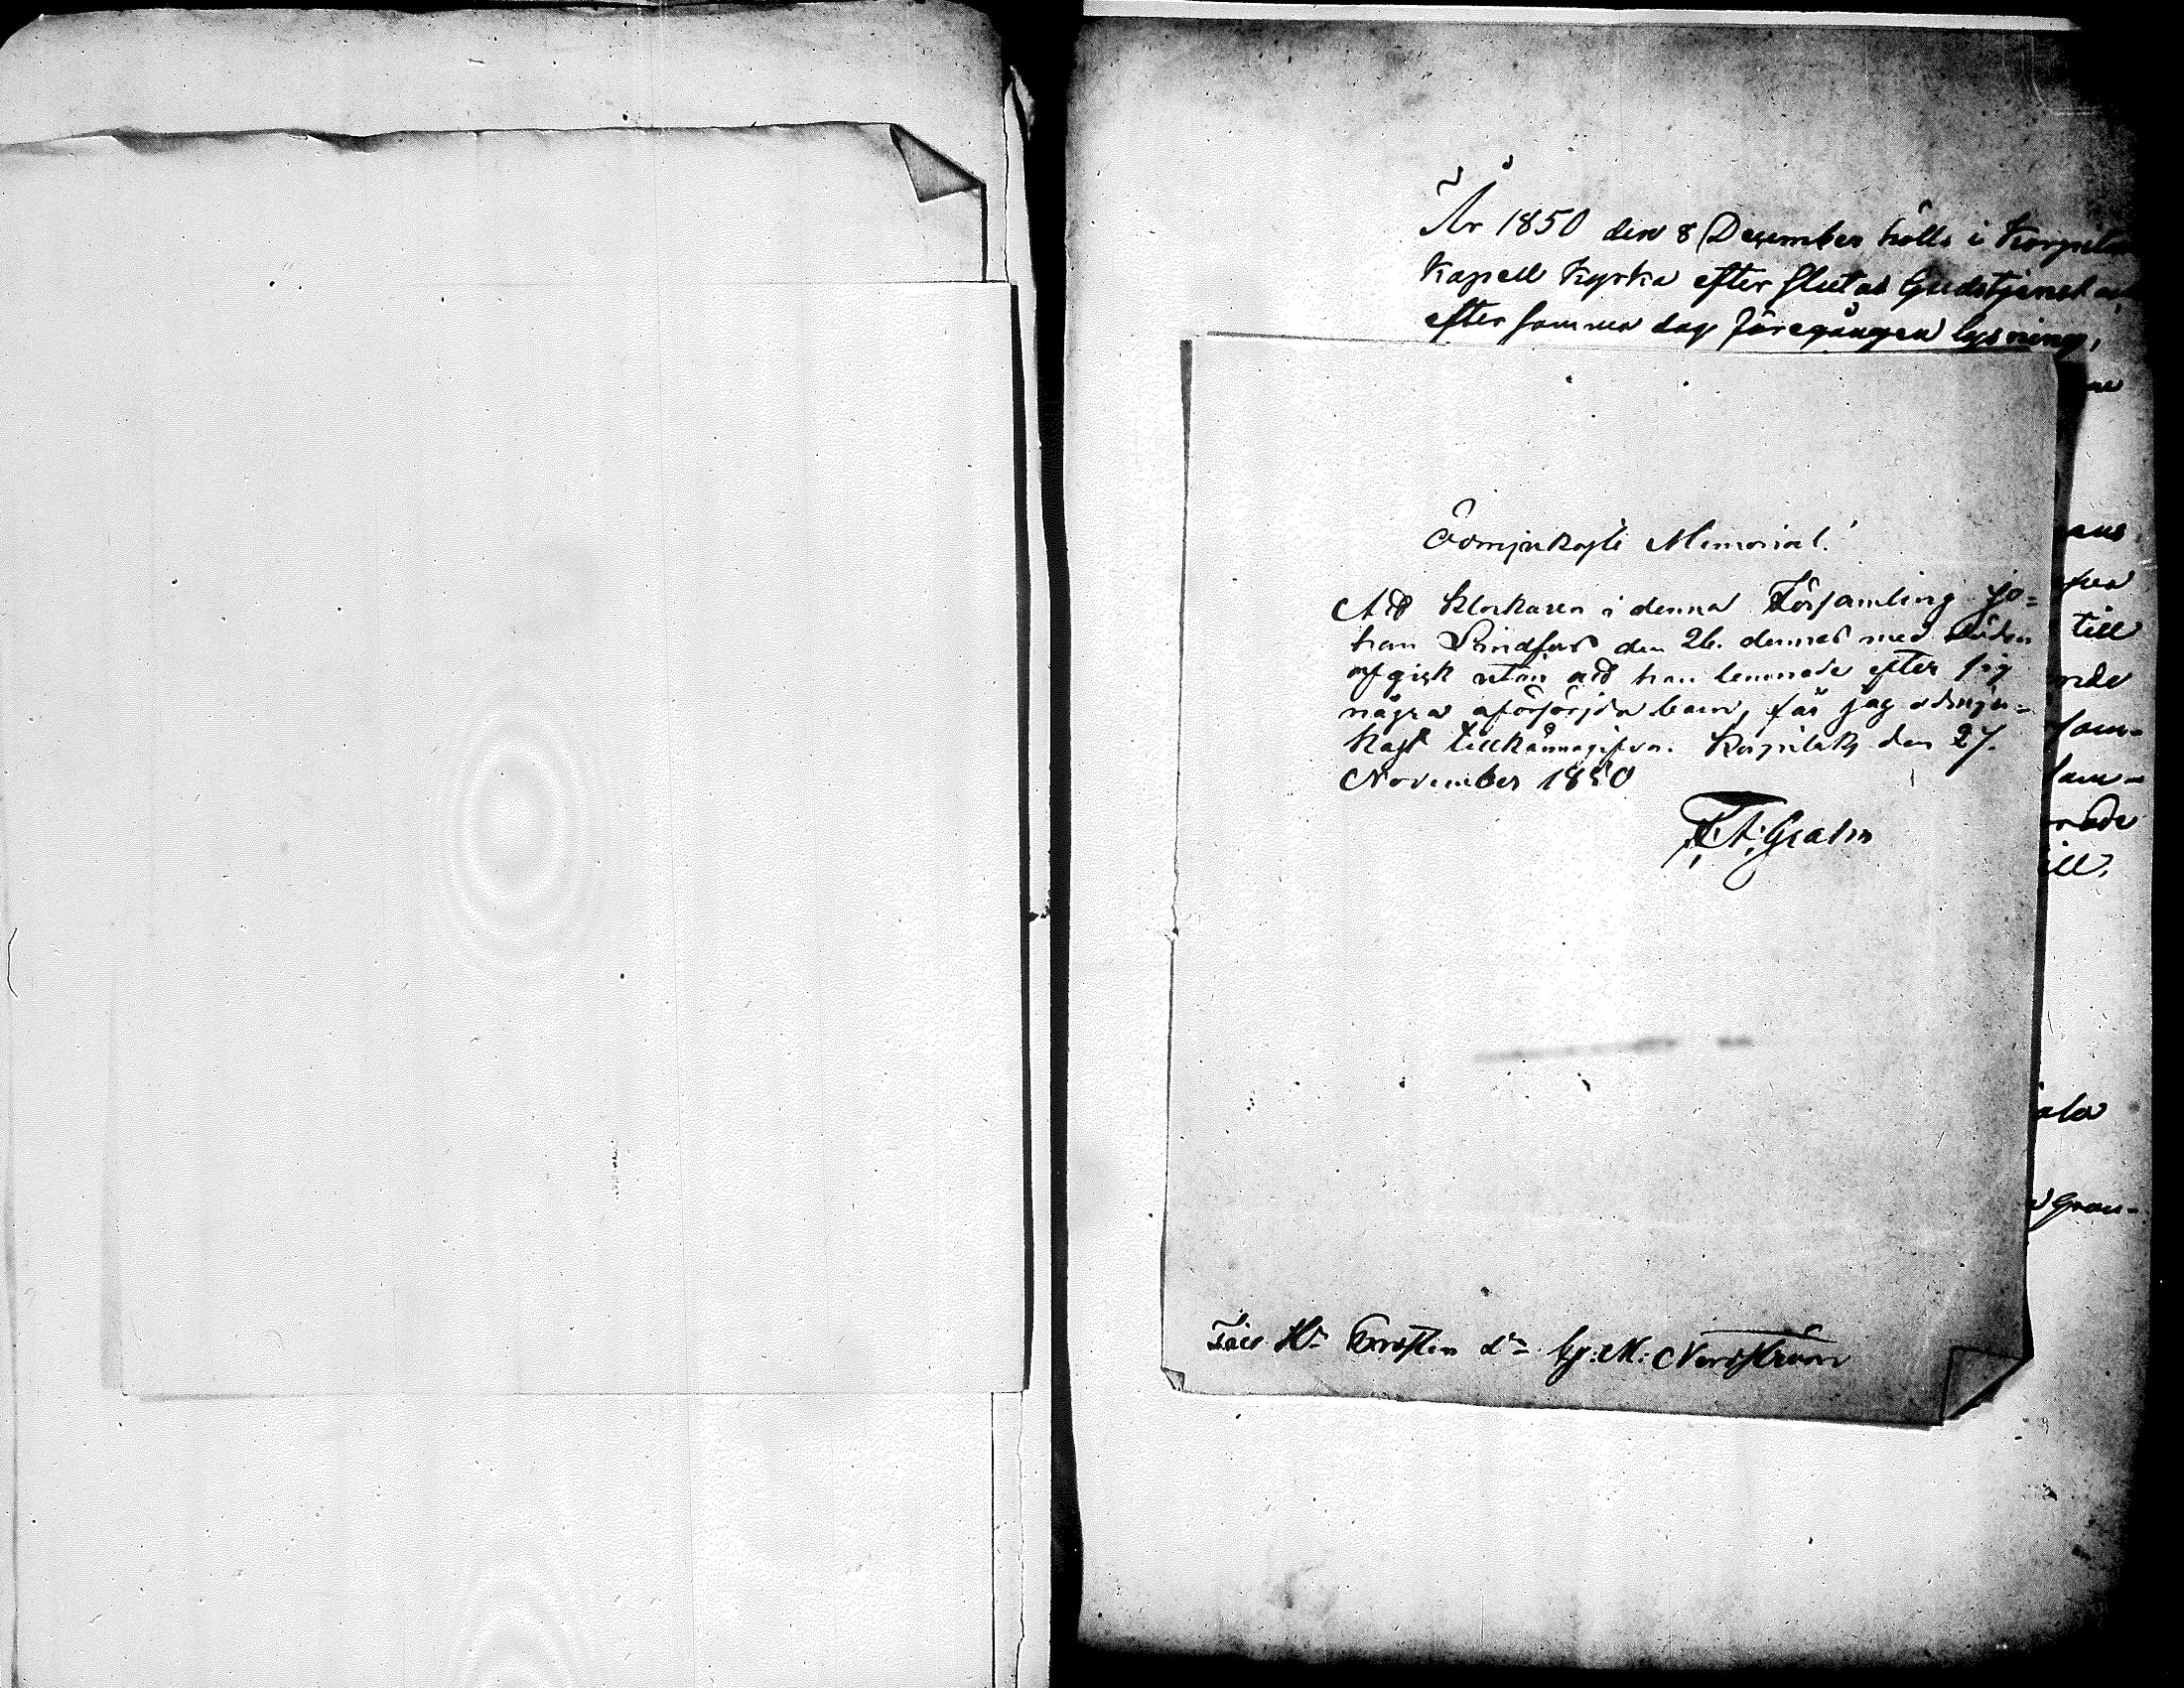 År 1850 den 8 December hölls i Korpilax
Kapell Kyrka efter slutad Gudstjenst och
efter samma dag föregången lysning,
Ödmjukaste Memorial!
Att Klockaren i denna Församling Jo=
han Lindfors den 26. dennes med döden
afgick utan att han lemnade efter sig
några oförsörjda barn, får jag ödmju=
kast tillkännagifva. Korpilaks den 27.
November 1850
F. A. Grahn
till
ill.
ala
Gran-
Nordström